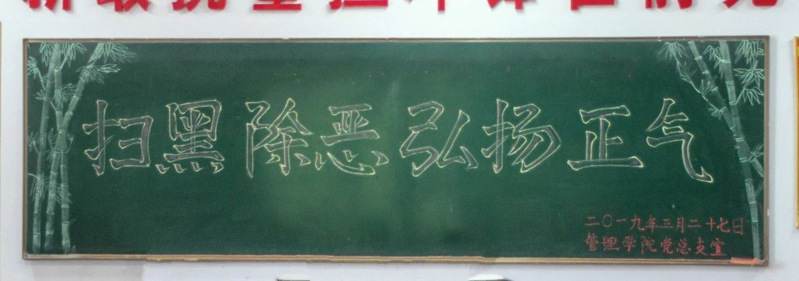 扫黑除恶弘扬正气
二〇一九年三月二十七日
管理学院党总支宣